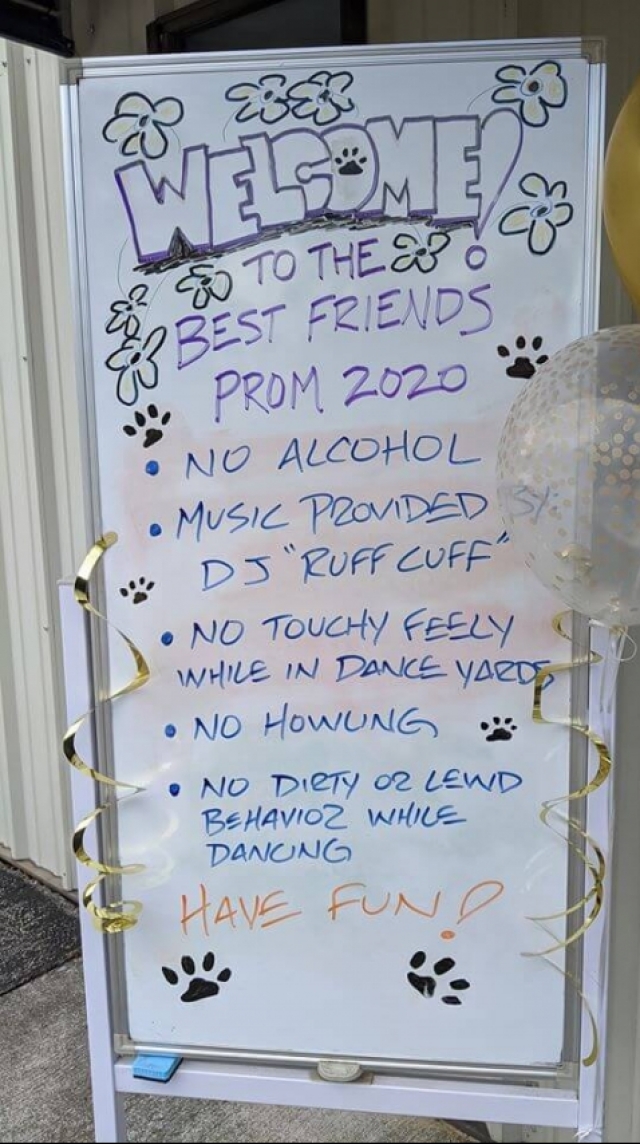 WELCOME!
TO THE
BEST FRIENDS
PROM 2020
• NO ALCOHOL
• MUSIC PROVIDED BY
DJ "RUFF CUFF"
• NO TOUCHY FEELY
WHILE IN DANCE YARDS
• NO HOWLING
• NO DIRTY OR LEWD
BEHAVIOR WHILE
DANCING
HAVE FUN!